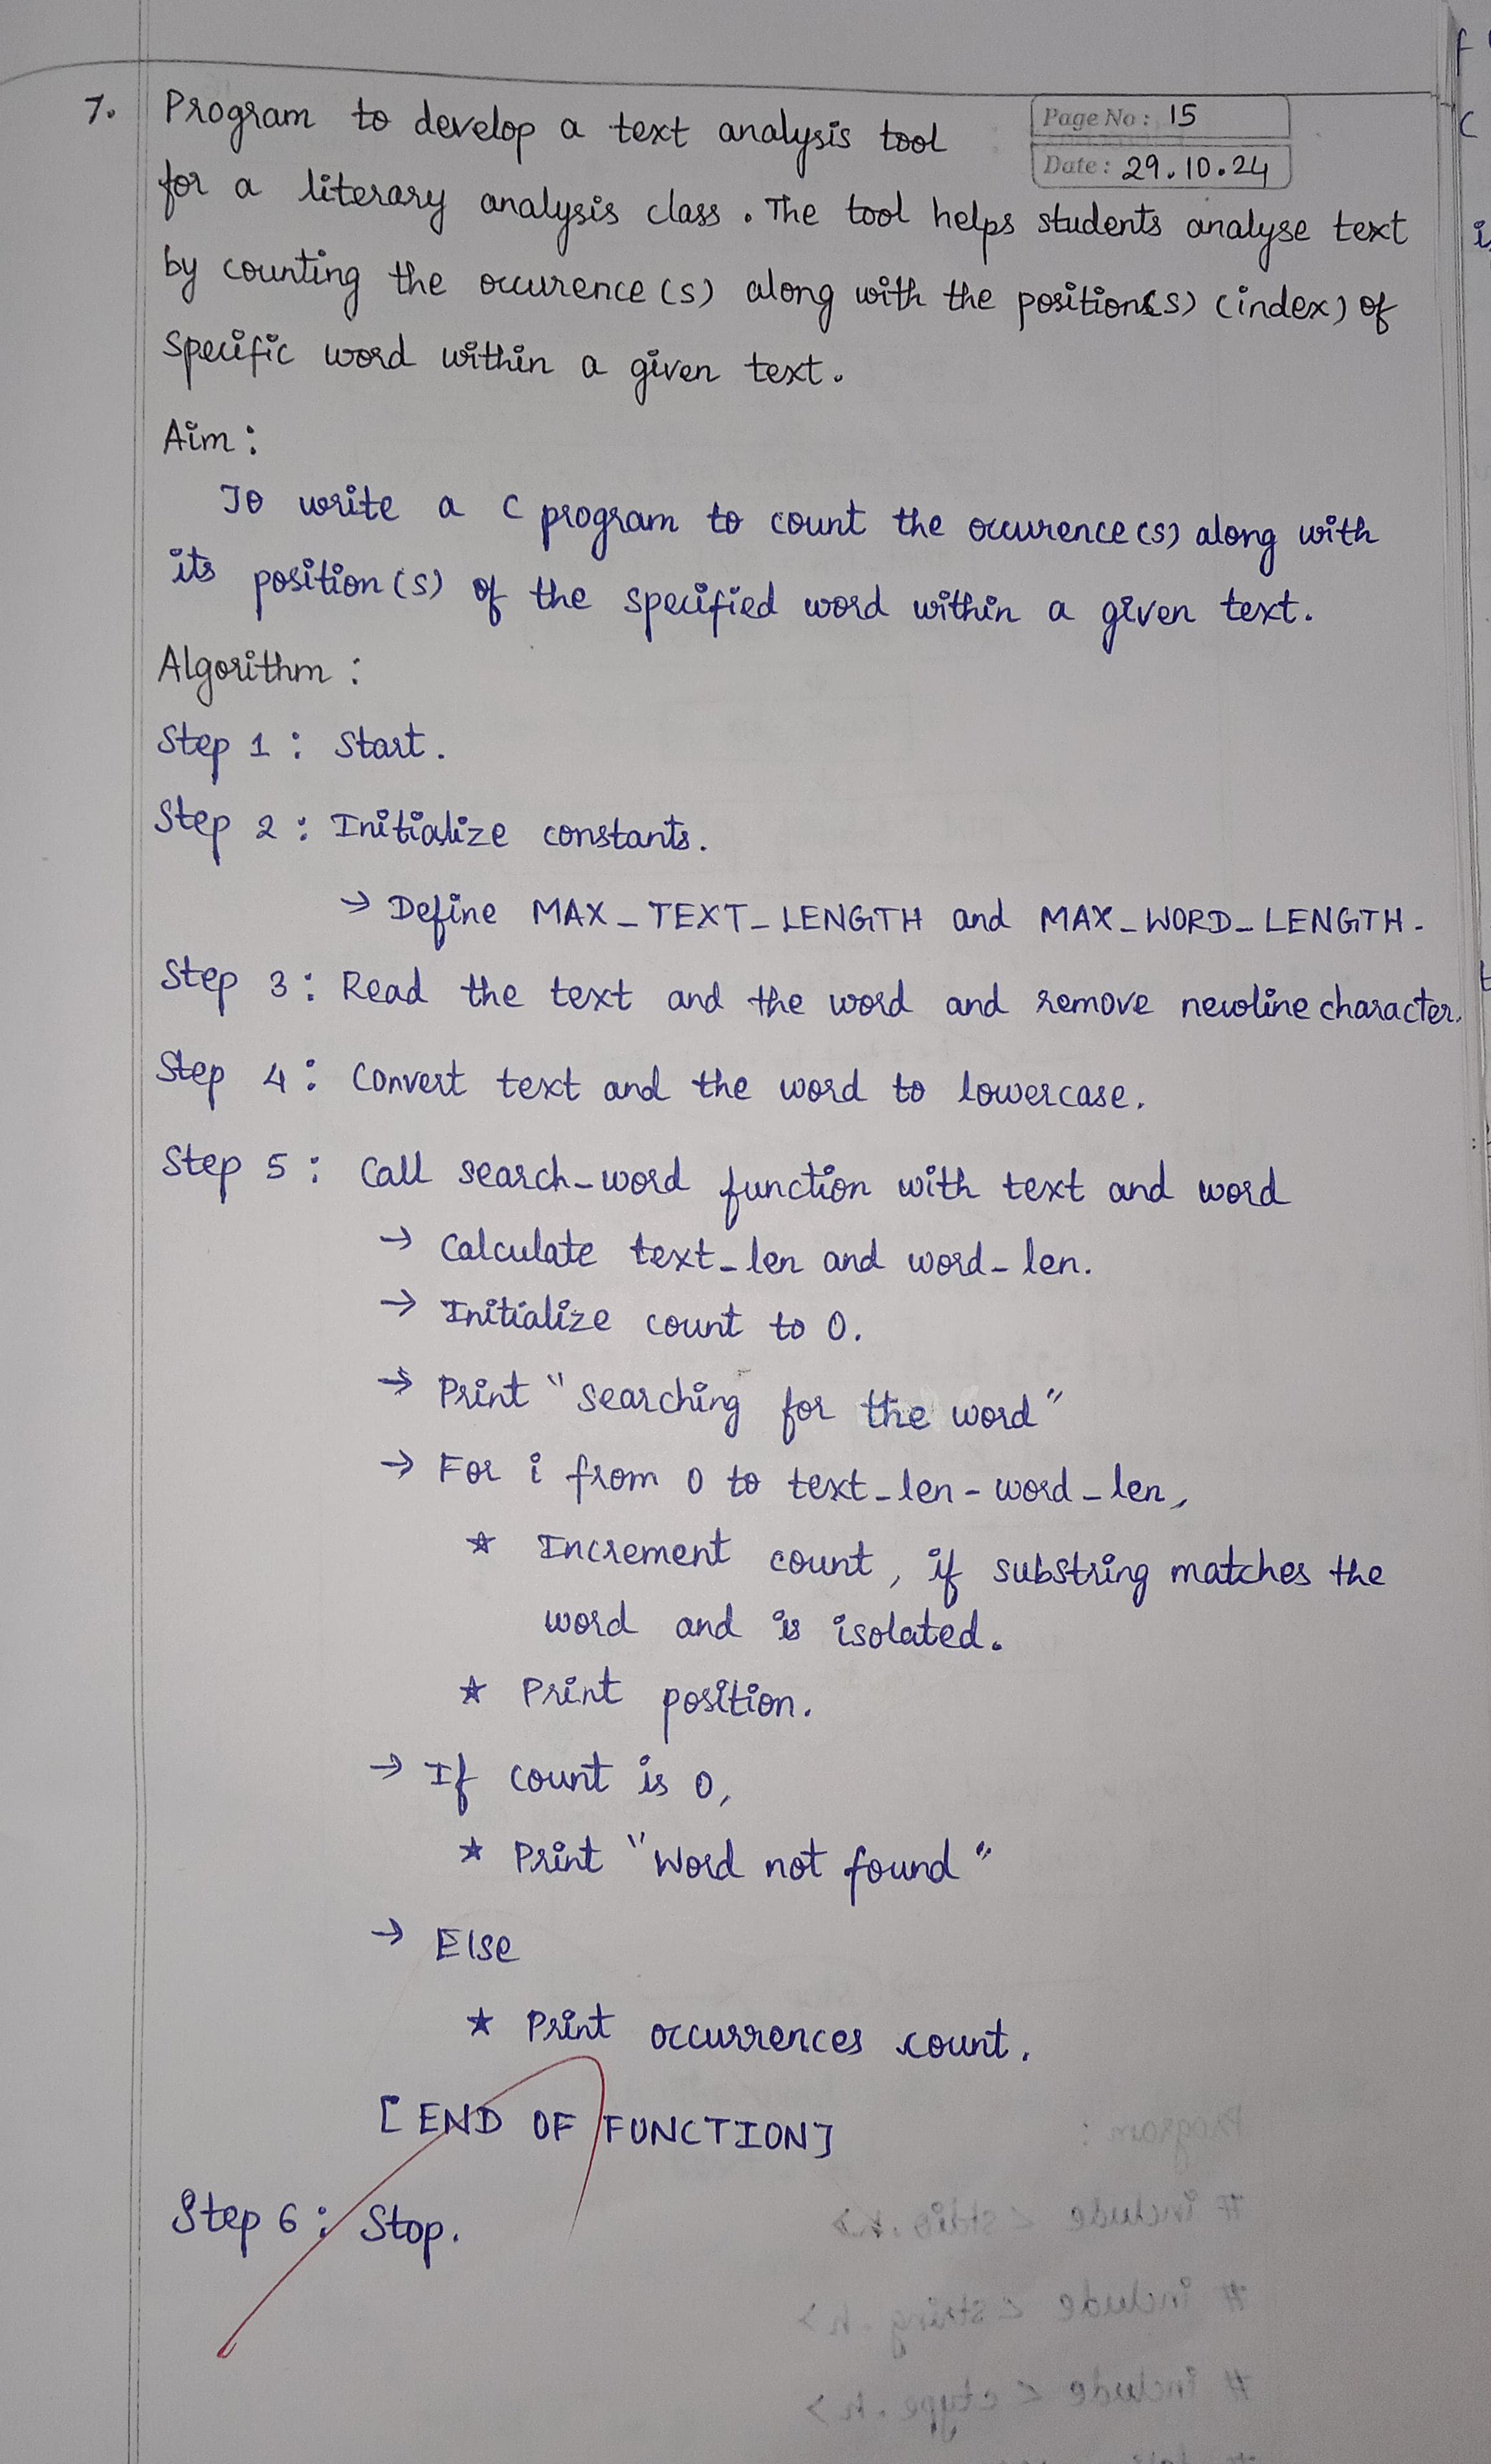 7. Program to develop a text analysis tool
Page No : 15
Date : 29.10.24
for a literary analysis class. The tool helps students analyse text
by counting the occurence(s) along with the position(s) (index) of
specific word within a given text.
Aim :
To write a C program to count the occurence(s) along with
its position(s) of the specified word within a given text.
Algorithm :
Step 1 : Start.
Step 2 : Initialize constants.
→ Define MAX_TEXT_LENGTH and MAX_WORD_LENGTH.
Step 3 : Read the text and the word and remove newline character.
Step 4 : Convert text and the word to lowercase.
Step 5 : Call search_word function with text and word
→ Calculate text_len and word_len.
→ Initialize count to 0.
→ Print "Searching for the word"
→ For i from 0 to text_len - word_len,
* Increment count, if substring matches the
word and is isolated.
* Print position.
→ If count is 0,
* Print "Word not found"
→ Else
* Print occurrences count.
[END OF FUNCTION]
Step 6 : Stop.
Program :
# include < stdio.h>
# include < string.h>
# include < ctype.h>